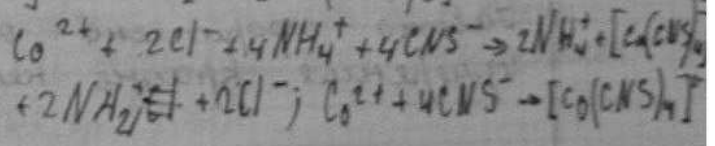 Co²⁺ + 2Cl⁻ + 4NH₄⁺ + 4CNS⁻ → 2NH₄⁺ + [Co(CNS)₄]
+ 2NH₄⁺ + 2Cl⁻; Co²⁺ + 4CNS⁻ → [Co(CNS)₄]